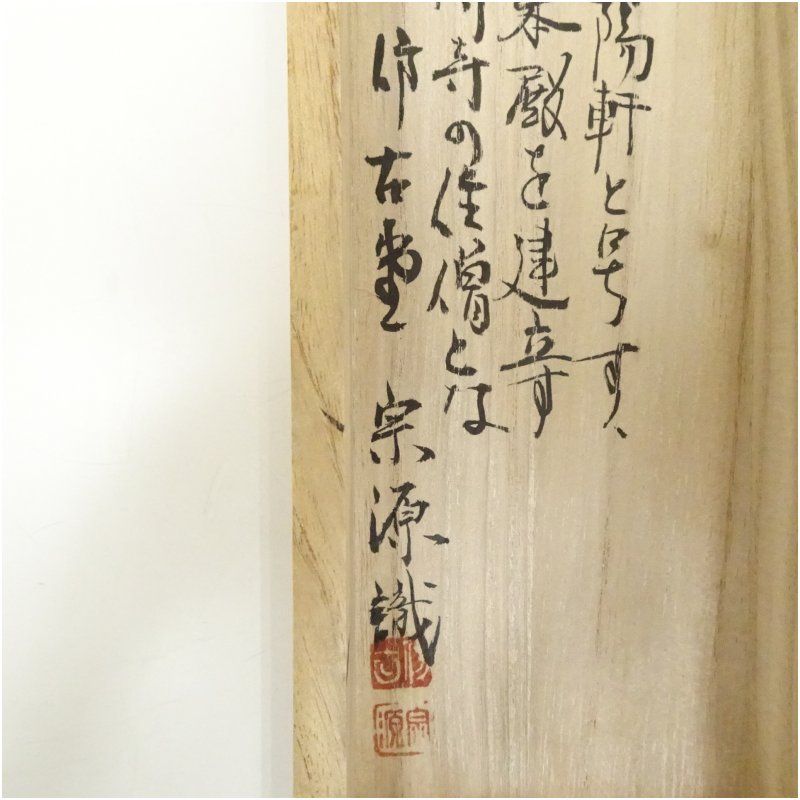 陽軒と号す、
本殿を建立す
寺の住僧とな
作古堂 宗源識
宗源